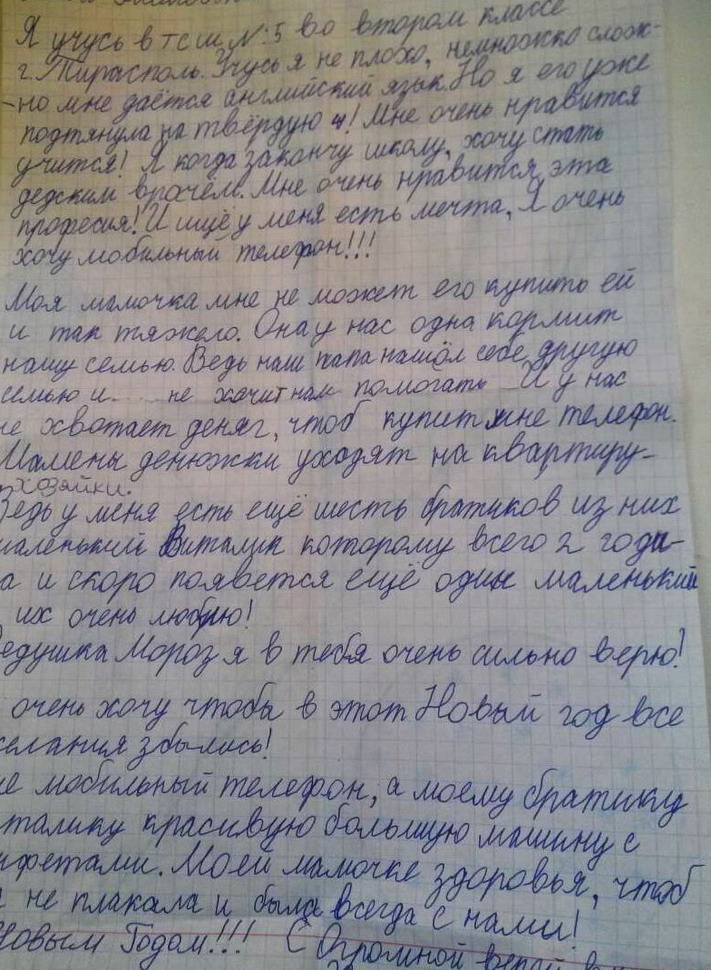 Я учусь в тсш №:5 во втором классе
г. Тирасполь. Учусь я не плохо, немножко слож-
-но мне даётся английский язык. Но я его уже
подтянула на твёрдую 4! Мне очень нравится
учится! Я когда закончу школу, хочу стать
дедским врачём. Мне очень нравится эта
професия! И ищё у меня есть мечта, Я очень
хочу мобильный телефон!!!
Моя мамочка мне не может его купить ей
и так тяжело. Она у нас одна кормит
нашу семью. Ведь наш папа нашёл себе другую
семью и.... не хачит нам помогать И у нас
не хвотает деняг, чтоб купит мне телефон.
Мамены денюжки уходят на квартиру-
хозяйки.
Ведь у меня есть ещё шесть братиков из них
маленький Виталик которому всего 2 годи-
ка и скоро появется ещё один маленький
их очень люблю!
Дедушка Мороз я в тебя очень сильно верю!
очень хочу чтобы в этот Новый год все
желания збылись!
мобильный телефон, а моему братику
Виталику красивую большую машину с
Моей мамочке здоровья, чтоб
не плакала и была всегда с нами!
Новым Годом!!! С Огромной верой в